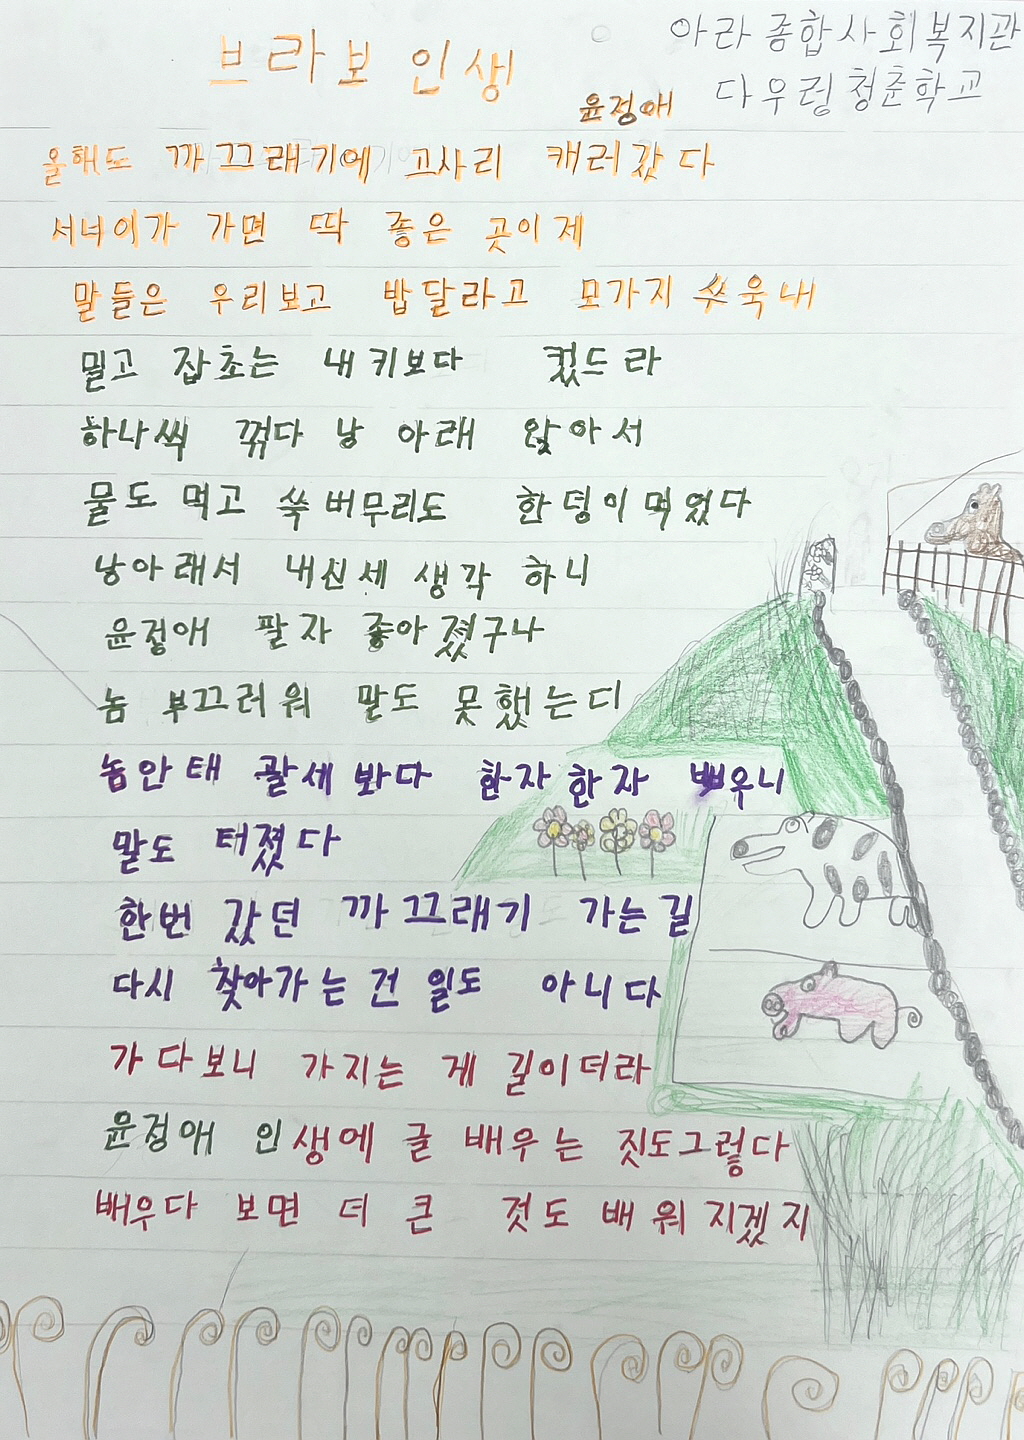 브라보 인생
아라종합사회복지관
다우렁청춘학교
윤정애
올해도 까끄래기에 고사리 캐러갔다
서너이가 가면 딱 좋은 곳이제
말들은 우리보고 밥달라고 모가지 쑤욱내
밀고 잡초는 내키보다 컸드라
하나씩 꺾다 낭 아래 앉아서
물도 먹고 쑥버무리도 한덩이먹었다
낭아래서 내신세 생각 하니
윤정애 팔자 좋아졌구나
놈 부끄러워 말도 못했는디
놈안태 괄세 봤다 한자한자 빼우니
말도 터졌다
한번 갔던 까끄래기 가는길
다시 찾아가는건 일도 아니다
가다보니 가지는 게 길이더라
윤정애 인생에 글 배우는 짓도그렇다
배우다 보면 더 큰 것도 배워지겠지